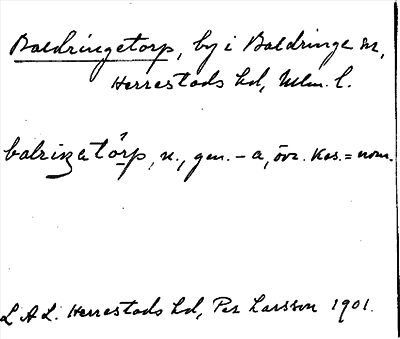 Baldringetorp, by i Baldringe sn,
Herrestads hd, Mlm. l.
balriŋetǻrp, n., gen. -a, övr. kas. = nom.
L.A.L. Herrestads hd, Per Larsson 1901.